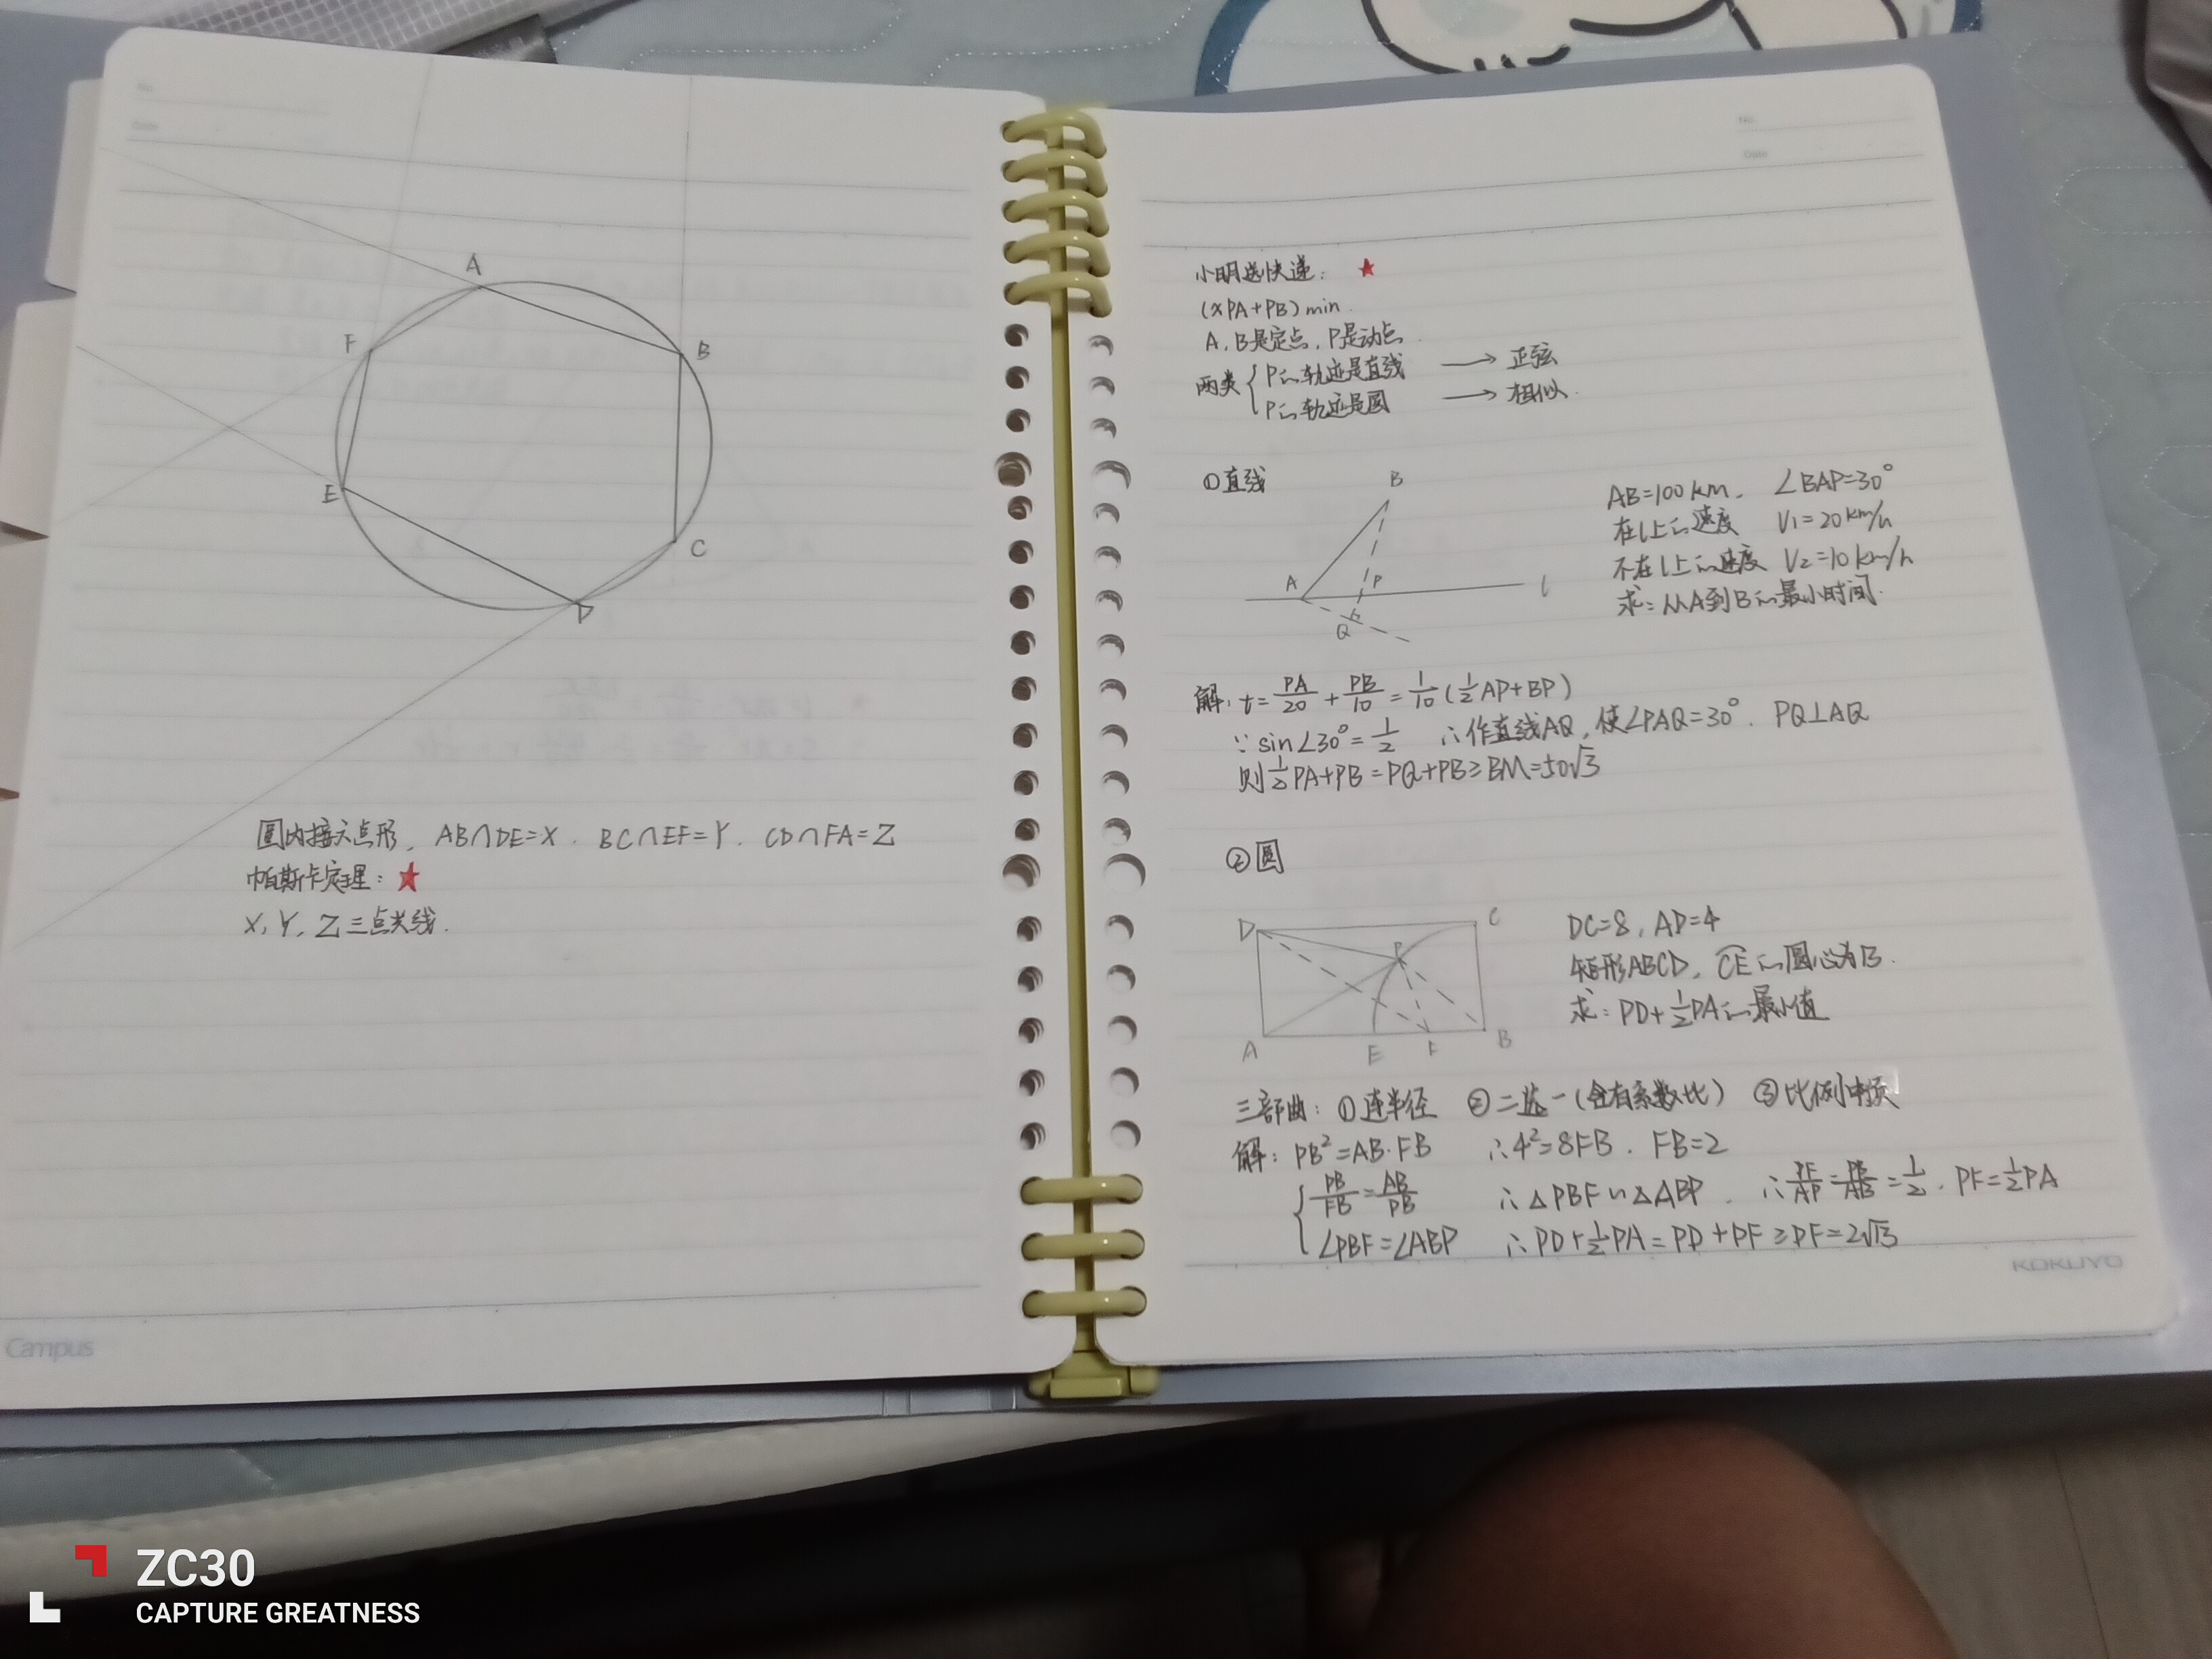 No.
Date
A
F
B
E
C
D
圆内接六点形, AB∩DE=X. BC∩EF=Y. CD∩FA=Z
帕斯卡定理: ★
X, Y, Z三点共线.
Campus
No.
Date
小明送快递: ★
(xPA+PB)min.
A, B是定点, P是动点.
两类 { P的轨迹是直线 → 正弦
P的轨迹是圆 → 相似.
①直线
B
A
P
l
Q
AB=100km, ∠BAP=30°
在l上的速度 V1=20km/h
不在l上的速度 V2=10km/h
求: 从A到B的最小时间.
解: t=PA/20+PB/10=1/10(1/2AP+BP)
∵sin∠30°=1/2 ∴作直线AQ, 使∠PAQ=30°. PQ⊥AQ
则1/2PA+PB=PQ+PB≥BM=50√3
②圆
D
C
P
A
E
F
B
DC=8, AD=4
矩形ABCD, CE的圆心为B.
求: PD+1/2PA的最小值
三部曲: ①连半径 ②二选一(含有系数比) ③比例中项
解: PB²=AB·FB ∴4²=8FB. FB=2
{ PB/FB=AB/PB ∴△PBF∽△ABP. ∴PF/AP=PB/AB=1/2. PF=1/2PA
∠PBF=∠ABP ∴PD+1/2PA=PD+PF≥PF=2√13
KOKUYO
ZC30
CAPTURE GREATNESS